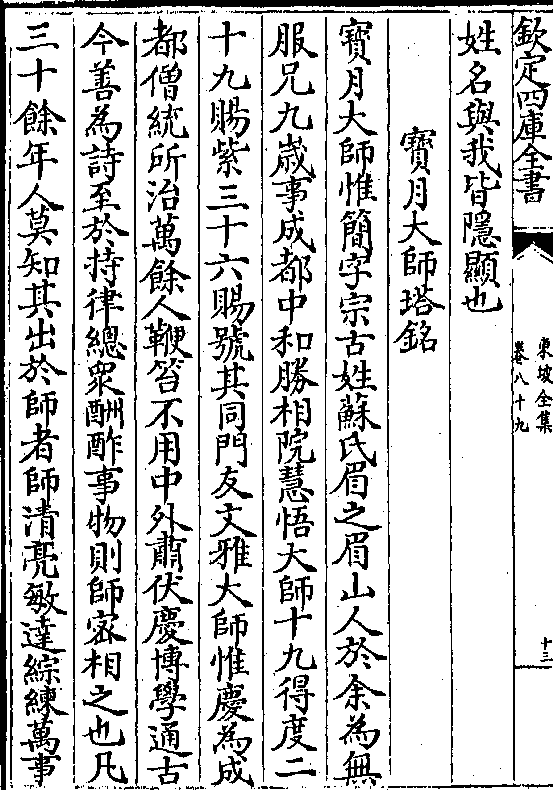 欽定四庫全書
東坡全集
卷八十九
十三
姓名與我皆隱顯也
寶月大師塔銘
寶月大師惟簡字宗古姓蘇氏眉之眉山人於余為無
服兄九歲事成都中和勝相院慧悟大師十九得度二
十九賜紫三十六賜號其同門友文雅大師惟慶為成
都僧統所治萬餘人鞭笞不用中外肅伏慶博學通古
今善為詩至於持律總衆酬酢事物則師密相之也凡
三十餘年人莫知其出於師者師清亮敏達綜練萬事